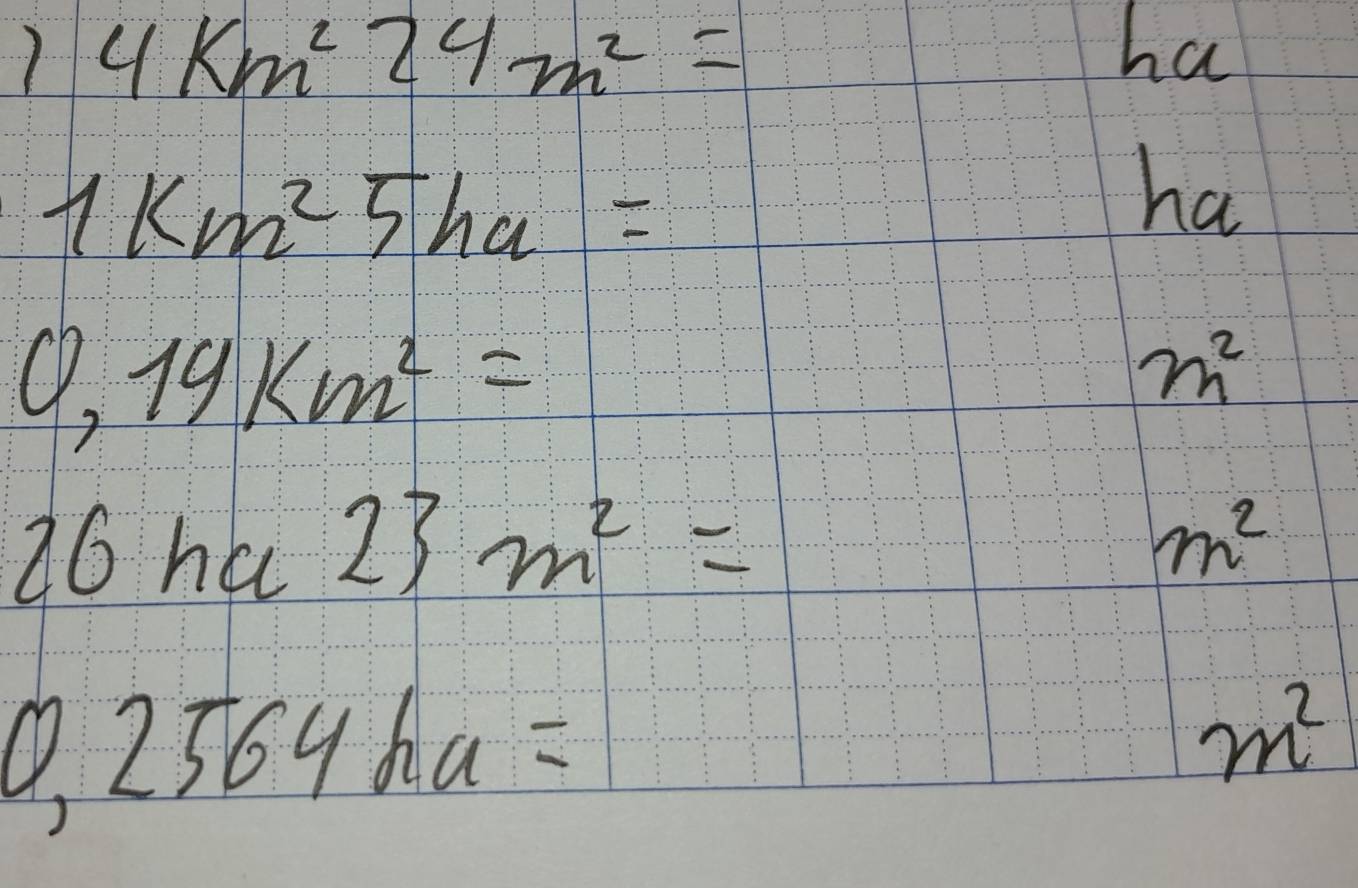 ) 4 Km² 24 m² = ha
1 Km² 5 ha = ha
0,19 Km² = m²
26 ha 23 m² = m²
0,2564 ha = m²